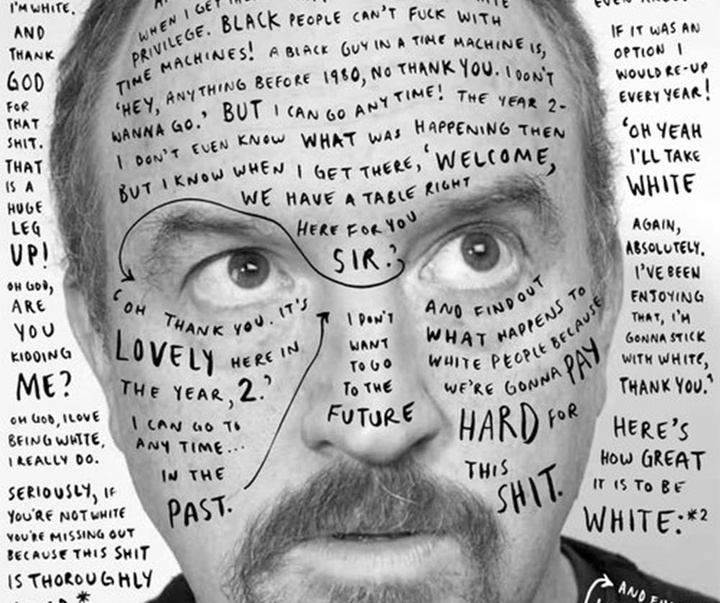 I'M WHITE.
AND
THANK
GOD
FOR
THAT
SHIT.
THAT
IS A
HUGE
LEG
UP!
OH GOD,
ARE
YOU
KIDDING
ME?
OH GOD, I LOVE
BEING WHITE,
I REALLY DO.
SERIOUSLY, IF
YOU'RE NOT WHITE
YOU'RE MISSING OUT
BECAUSE THIS SHIT
IS THOROUGHLY
*
WHEN I GET
PRIVILEGE. BLACK PEOPLE CAN'T FUCK WITH
TIME MACHINES! A BLACK GUY IN A TIME MACHINE IS,
'HEY, ANYTHING BEFORE 1980, NO THANK YOU. I DON'T
WANNA GO.' BUT I CAN GO ANY TIME! THE YEAR 2-
I DON'T EVEN KNOW WHAT WAS HAPPENING THEN
BUT I KNOW WHEN I GET THERE, 'WELCOME,
WE HAVE A TABLE RIGHT
HERE FOR YOU
SIR.'
'OH THANK YOU. IT'S
LOVELY HERE IN
THE YEAR, 2.'
I CAN GO TO
ANY TIME...
IN THE
PAST.
I DON'T
WANT
TO GO
TO THE
FUTURE
AND FIND OUT
WHAT HAPPENS TO
WHITE PEOPLE BECAUSE
WE'RE GONNA PAY
HARD FOR
THIS
SHIT.
IF IT WAS AN
OPTION I
WOULD RE-UP
EVERY YEAR!
'OH YEAH
I'LL TAKE
WHITE
AGAIN,
ABSOLUTELY.
I'VE BEEN
ENJOYING
THAT, I'M
GONNA STICK
WITH WHITE,
THANK YOU.'
HERE'S
HOW GREAT
IT IS TO BE
WHITE:*2
AND